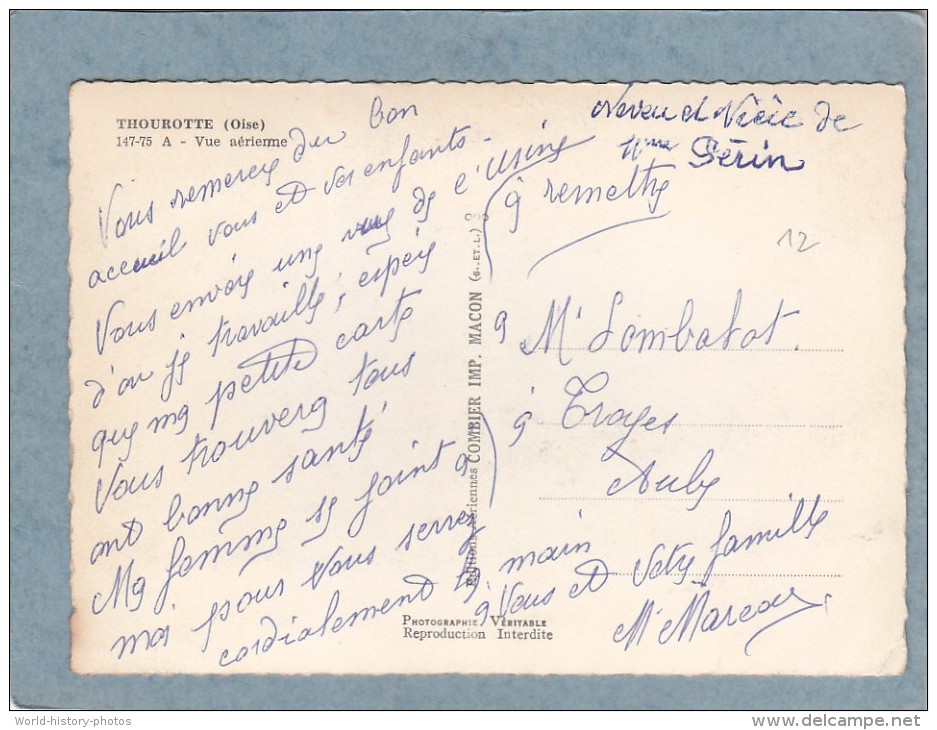 THOUROTTE (Oise)
147-75 A - Vue aérienne
Vous remercie du bon
accueil vous et vos enfants -
Vous envoie une vue de l'Usine
d'ou je travaille, espère
que ma petite carte
Vous trouvera tous
ont bonne santé
Ma femme se joint a
moi pour Vous serrez
cordialement la main
a Vous et Votre famille
Mr Marcou
Neveu et Nièce de
Mme Périn
à remettre
a Mr Lombalot.
à Troyes
Aube
12
Editions Aériennes COMBIER IMP. MACON (S.-ET-L.)
PHOTOGRAPHIE VÉRITABLE
Reproduction Interdite
World-history-photos
www.delcampe.net